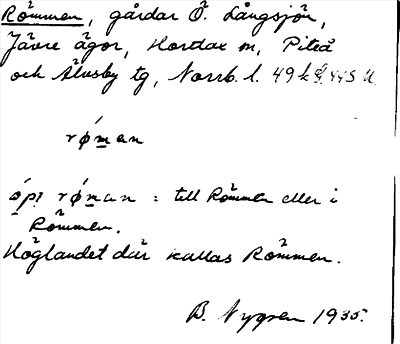 Römmen, gårdar Ö. Långsjön,
Jävre ägor, Hortlax sn, Piteå
och Älvsby tg, Norrb. l. 49 k 445 U.
røman
røman : till Römmen eller i
Römmen.
Höglandet där kallas Römmen.
B. Nygren 1935.